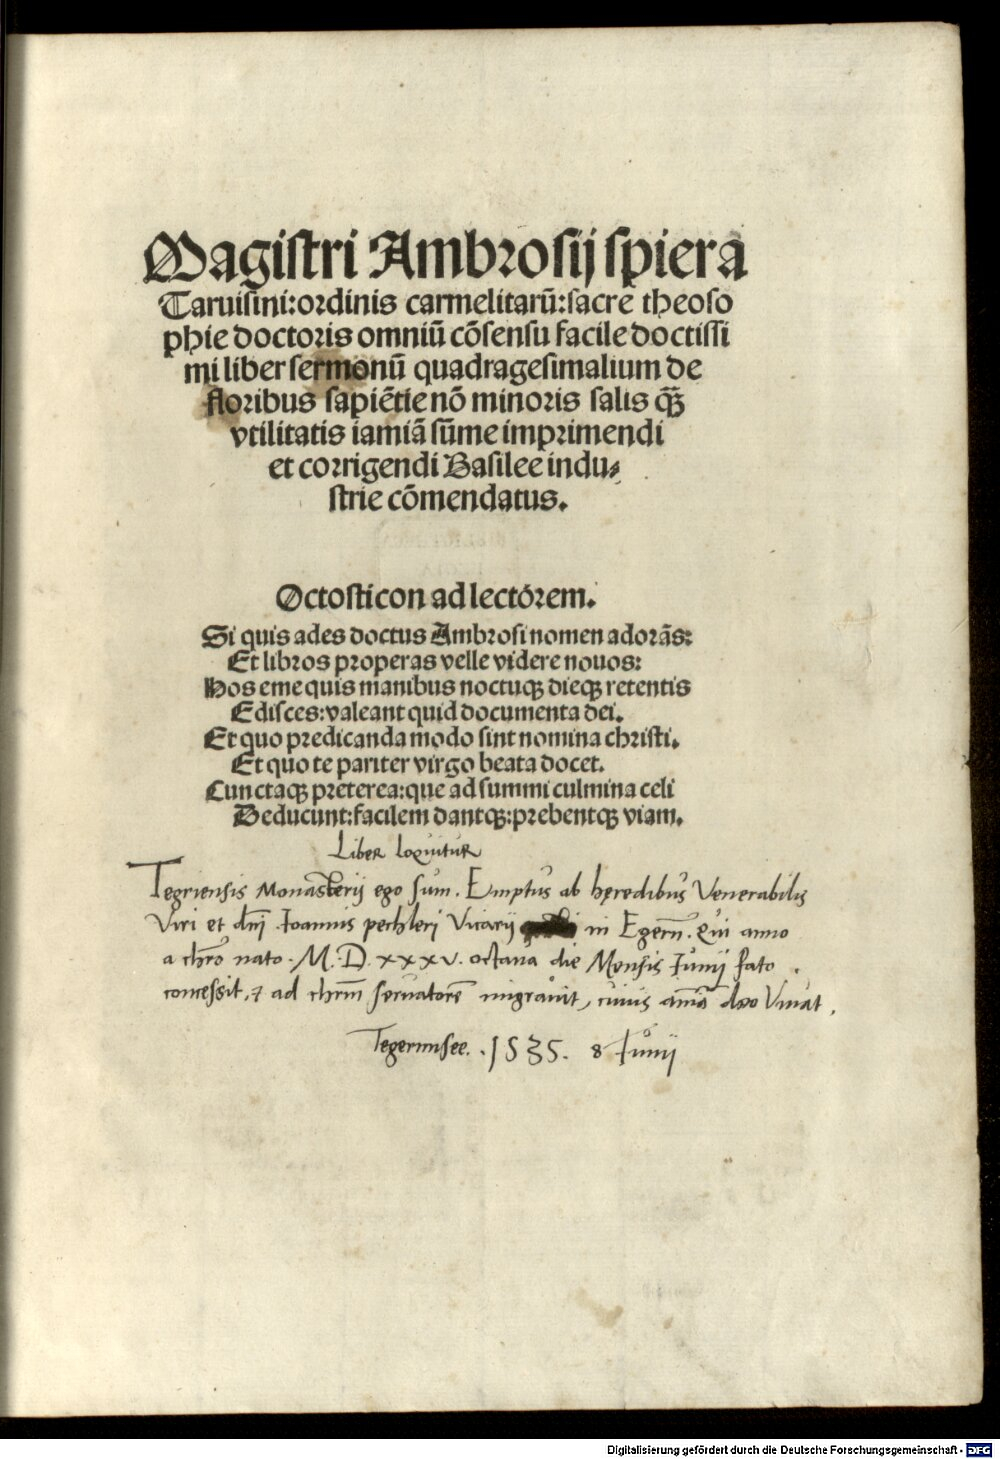 Magistri Ambrosij spiera
Taruisini:ordinis carmelitarū:sacre theoso
phie doctoris omniū cōsensu facile doctissi
mi liber sermonū quadragesimalium de
floribus sapiētie nō minoris salis qꝫ̄
vtilitatis iamiā sūme imprimendi
et corrigendi Basilee indu⸗
strie cōmendatus.
Octosticon ad lectórem.
Si quis ades doctus Ambrosi nomen adorās:
Et libros properas velle videre nouos:
Hos eme quis manibus noctuqꝫ dieqꝫ retentis
Edisces:valeant quid documenta dei.
Et quo predicanda modo sint nomina christi.
Et quo te pariter virgo beata docet.
Cunctaqꝫ preterea:que ad summi culmina celi
Deducunt:facilem dantqꝫ:prebentqꝫ viam.
Liber loquitur
Tegriensis Monasterij ego sum. Emptus ab hęredibus Venerabilis
Viri et dn̄i Ioannis pechleri Vicarij in Egern̄. Qui anno
a chro nato. M.D.xxxv. octaua die Mensis Iunij fato
concessit, ⁊ ad chrm̄ seruatorē migrauit, cuius aīa deo Viuat.
Tegernnsee. 1535. 8 Iunij
Digitalisierung gefördert durch die Deutsche Forschungsgemeinschaft - DFG